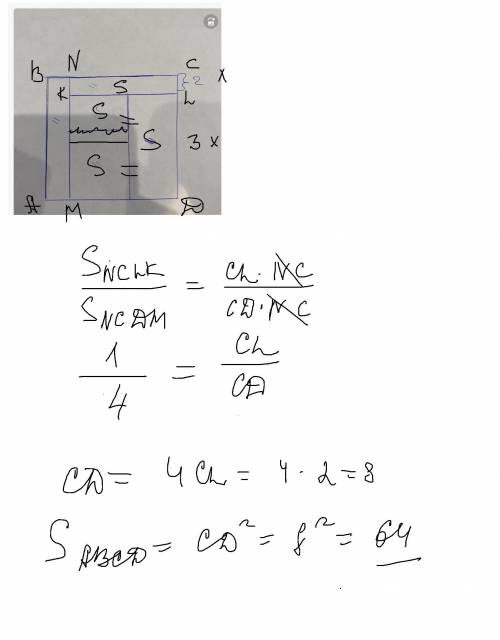 B N C x
K S } 2 L
S = S 3 x
S =
A M D
S NCLK / S NCDM = CL · NC / CD · NC
1 / 4 = CL / CD
CD = 4 CL = 4 · 2 = 8
S ABCD = CD² = 8² = 64